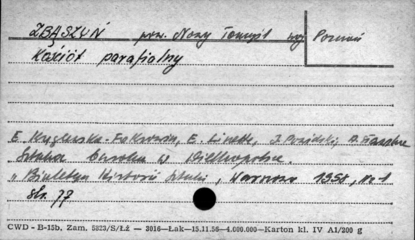 ZBĄSZYŃ pow. Nowy Tomyśl woj. Poznań
Kościół parafialny
E. Kręglewska-Foksowicz, E. Linette, J. Powidzki,
Sztuka baroku w Wielkopolsce.
"Biuletyn Historii Sztuki, Warszawa 1958, nr 1
str. 77
CWD - B-15b. Zam. 5823/S/Łż — 3016—Łak—15.11.56—4.000.000—Karton kl. IV A1/200 g